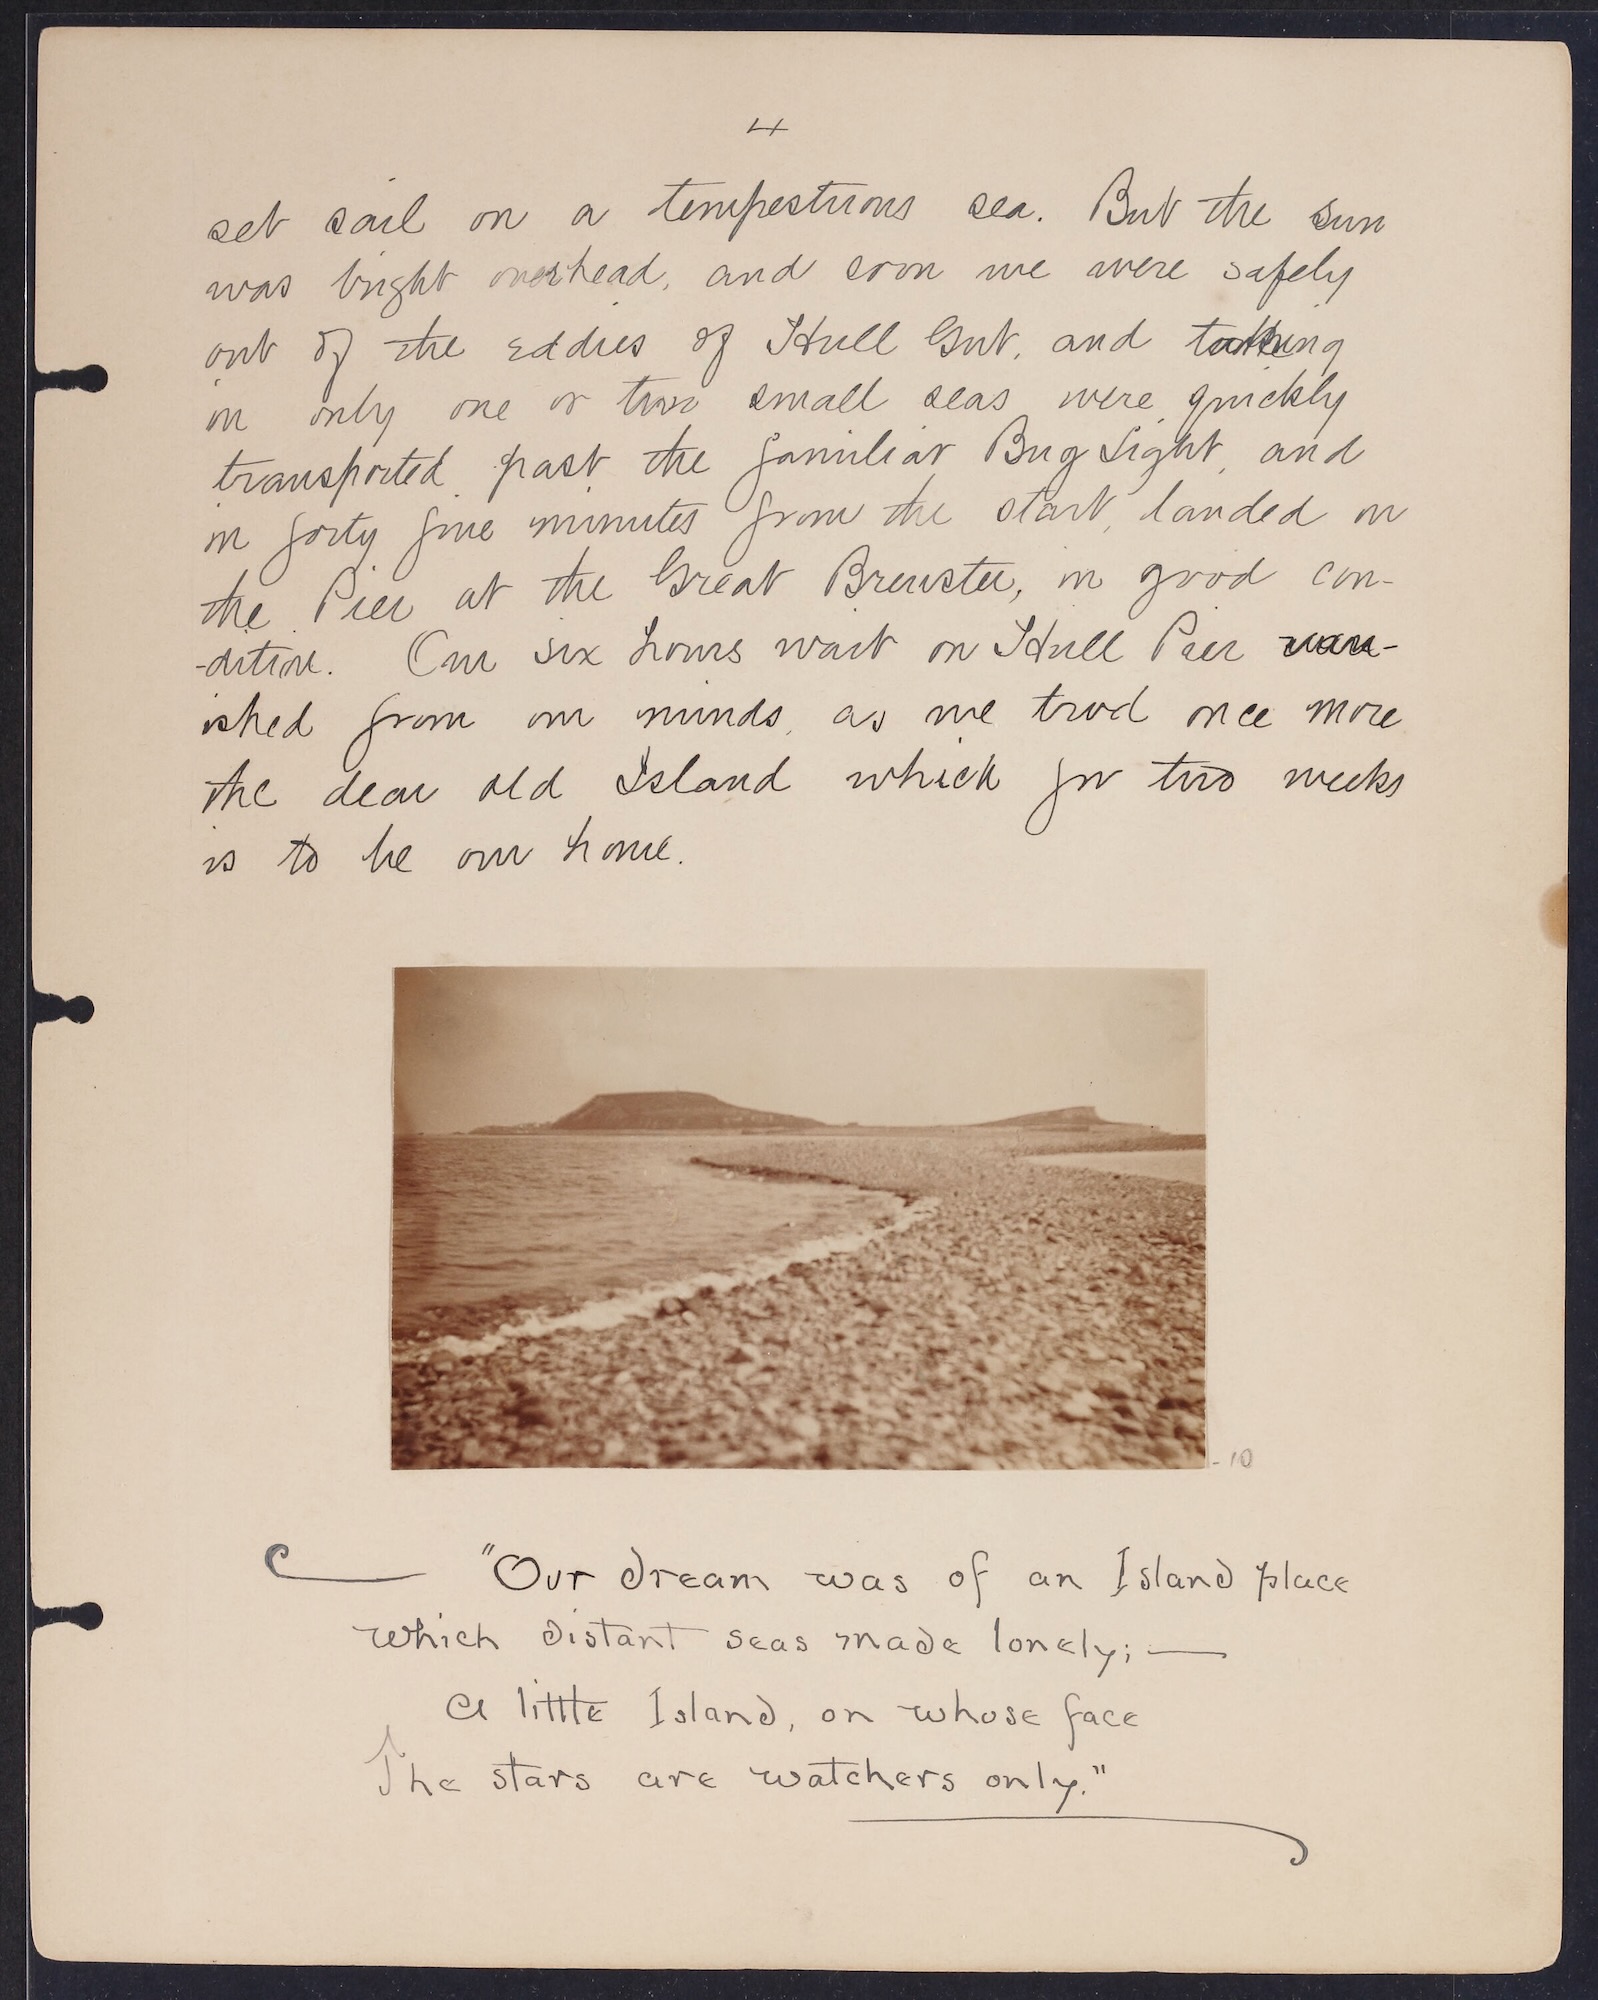 4
set sail on a tempestuous sea. But the sun
was bright overhead, and soon we were safely
out of the eddies of Hull Gut, and taking
in only one or two small seas were quickly
transported past the familiar Bug Light, and
in forty five minutes from the start, landed on
the Pier at the Great Brewster, in good con-
-dition. Our six hours wait on Hull Pier van-
ished from our minds, as we trod once more
the dear old Island which for two weeks
is to be our home.
- 10
"Our dream was of an Island place
which distant seas made lonely; —
A little Island, on whose face
The stars are watchers only."